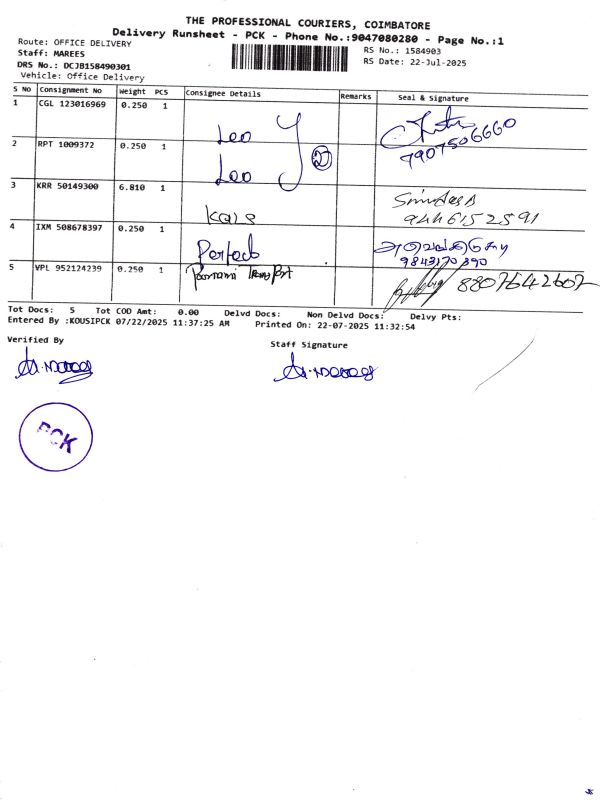 THE PROFESSIONAL COURIERS, COIMBATORE
Delivery Runsheet - PCK - Phone No.:9047080280 - Page No.:1
Route: OFFICE DELIVERY
Staff: MAREES
DRS No.: DCJB158490301
Vehicle: Office Delivery
RS No.: 1584903
RS Date: 22-Jul-2025
S No Consignment No Weight PCS Consignee Details Remarks Seal & Signature
1 CGL 123016969 0.250 1 Leo 7907506660
2 RPT 1009372 0.250 1 Leo
3 KRR 50149300 6.810 1 Kals 9446152591
4 IXM 508678397 0.250 1 Perfect 9843170890
5 VPL 952124239 0.250 1 8807642602
Tot Docs: 5 Tot COD Amt: 0.00 Delvd Docs: Non Delvd Docs: Delvy Pts:
Entered By :KOUSIPCK 07/22/2025 11:37:25 AM Printed On: 22-07-2025 11:32:54
Verified By
Staff Signature
PCK